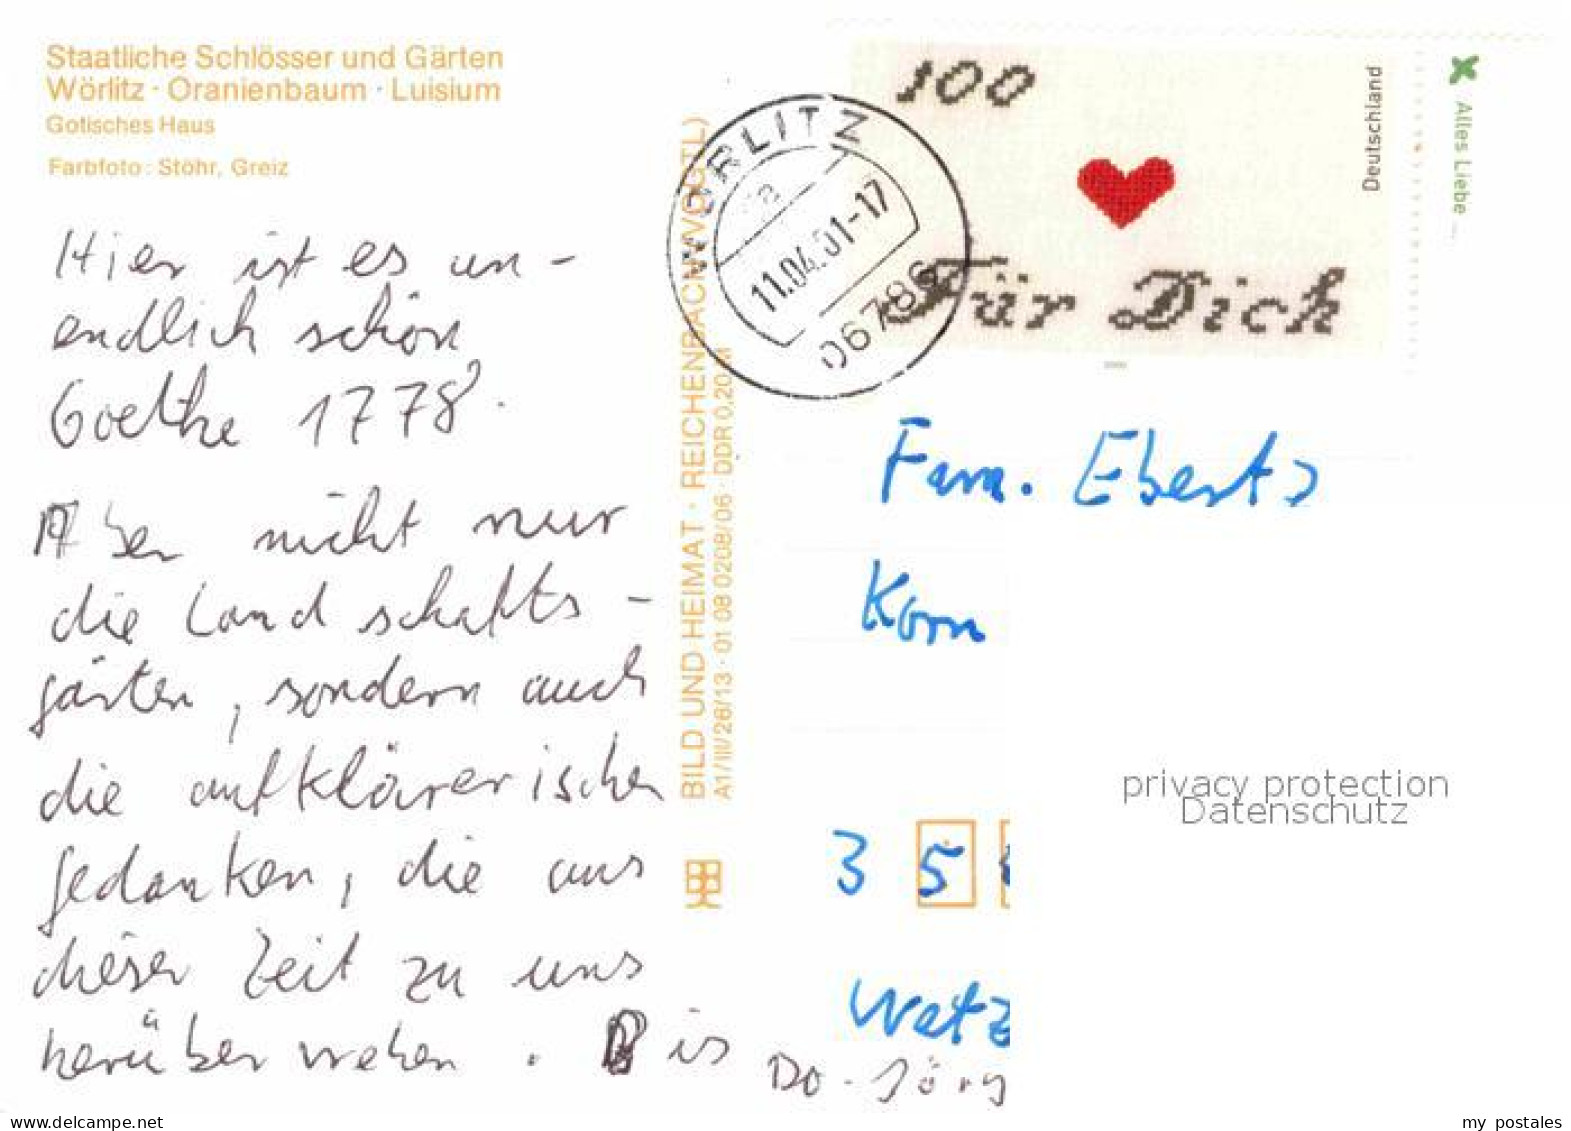 Staatliche Schlösser und Gärten
Wörlitz · Oranienbaum · Luisium
Gotisches Haus
Farbfoto: Stöhr, Greiz
Hier ist es un-
endlich schön,
Goethe 1778.
Aber nicht nur
die Landschafts-
gärten, sondern auch
die aufklärerischen
gedanken, die aus
dieser Zeit zu uns
herüber wehen. Bis
Do. Jörg
BILD UND HEIMAT · REICHENBACH (VOGTL)
A1/III/26/13 · 01 08 0208/06 · DDR 0,20 M
WÖRLITZ
11.04.01-17
06786
100
Für Dich
Deutschland
Alles Liebe...
Fam. Eberts
Korn
3 5
Wetz
privacy protection
Datenschutz
my postales